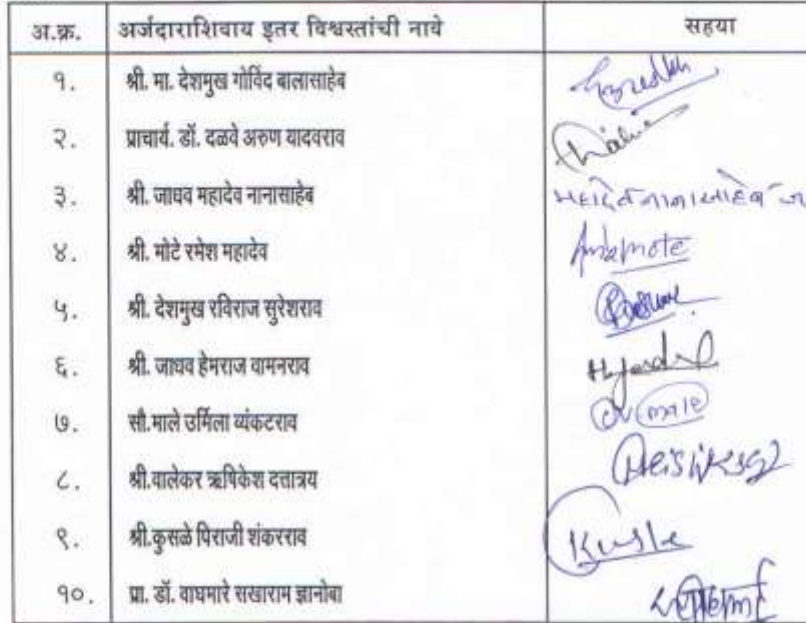 अ.क्र. अर्जदाराशिवाय इतर विश्वस्तांची नावे सहया
१. श्री. मा. देशमुख गोविंद बालासाहेब
२. प्राचार्य. डॉ. दळवे अरुण यादवराव
३. श्री. जाधव महादेव नानासाहेब महादेव नानासाहेब
४. श्री. मोटे रमेश महादेव mote
५. श्री. देशमुख रविराज सुरेशराव
६. श्री. जाधव हेमराज वामनराव
७. सौ.माले उर्मिला व्यंकटराव male
८. श्री.वालेकर ऋषिकेश दत्तात्रय
९. श्री.कुसळे पिराजी शंकरराव Kusle
१०. प्रा. डॉ. वाघमारे सखाराम ज्ञानोबा